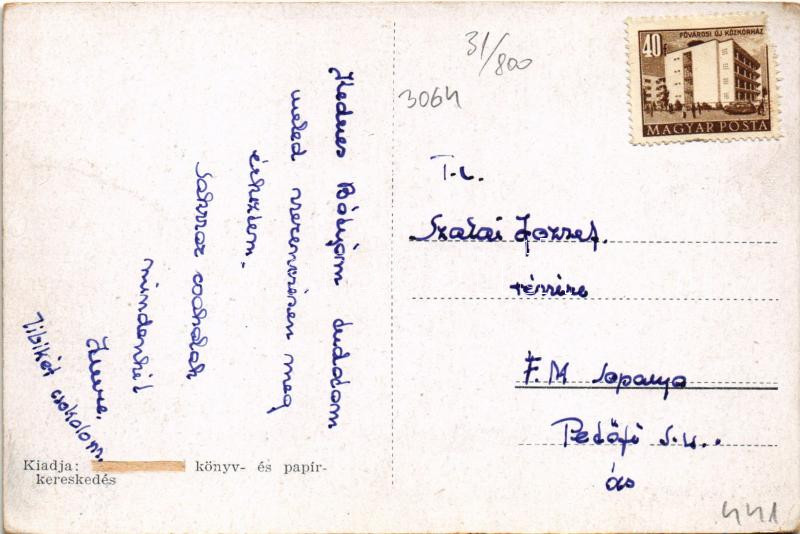 Kedves Bátyám tudatom
veled szerencsésen meg
érkeztem.
Sakszor csokolok
mindenkit
Imre.
Tibikét csokolom.
Kiadja:
könyv- és papír-
kereskedés
31/800
3064
40f
FŐVÁROSI ÚJ KÓZKÓRHÁZ
MAGYAR POSTA
T.c.
Szalai József.
részére
F.M
Petőfi S.u..
441